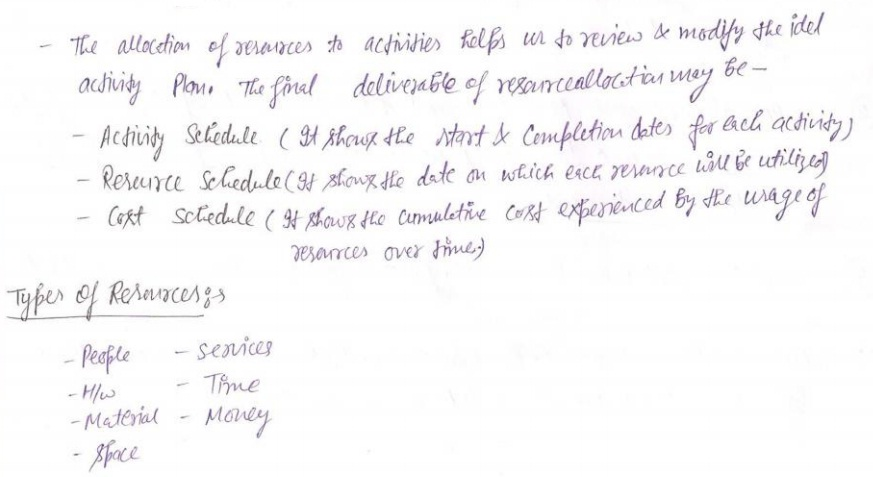 - The allocation of resources to activities helps us to review & modify the idel
activity Plan. The final deliverable of resource allocation may be -
- Activity Schedule (It shows the start & Completion dates for each activity)
- Resource Schedule (It shows the date on which each resource will be utilized)
- Cost Schedule (It shows the cumulative cost experienced by the usage of
resources over time.)
Types of Resources:-
- People - services
- H/w - Time
- Material - Money
- space